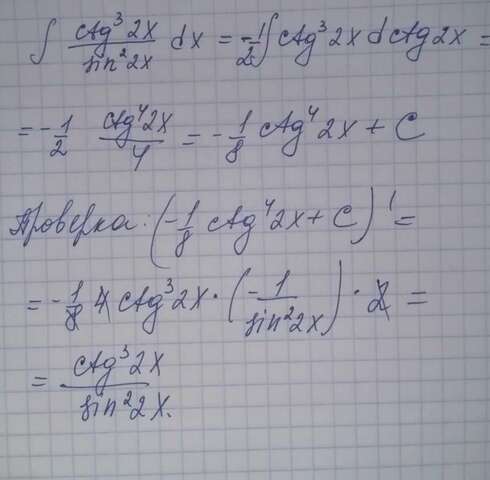 ∫ ctg³2x/sin²2x dx = -1/2∫ctg³2x dctg2x =
= -1/2 ctg⁴2x/4 = -1/8 ctg⁴2x + C
Проверка: (-1/8 ctg⁴2x + C)' =
= -1/8 4 ctg³2x · (-1/sin²2x) · 2 =
= ctg³2x/sin²2x.